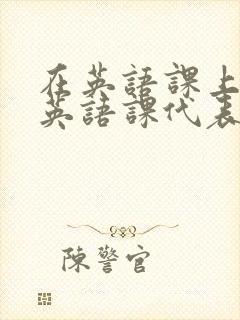 在英語課上
英語課代表
陳警官